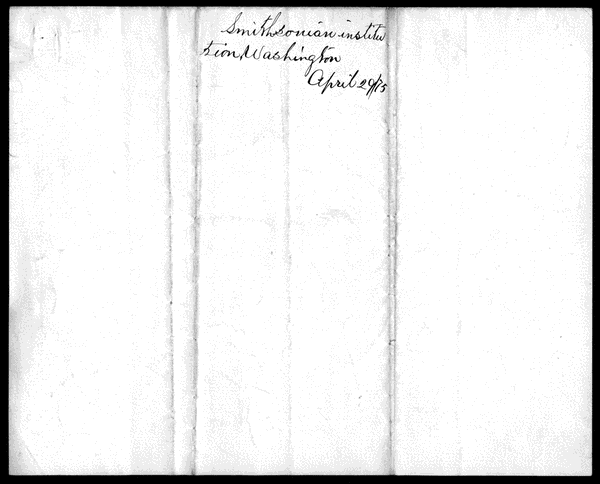 Smithsonian institu
tion, Washington
April 29/75